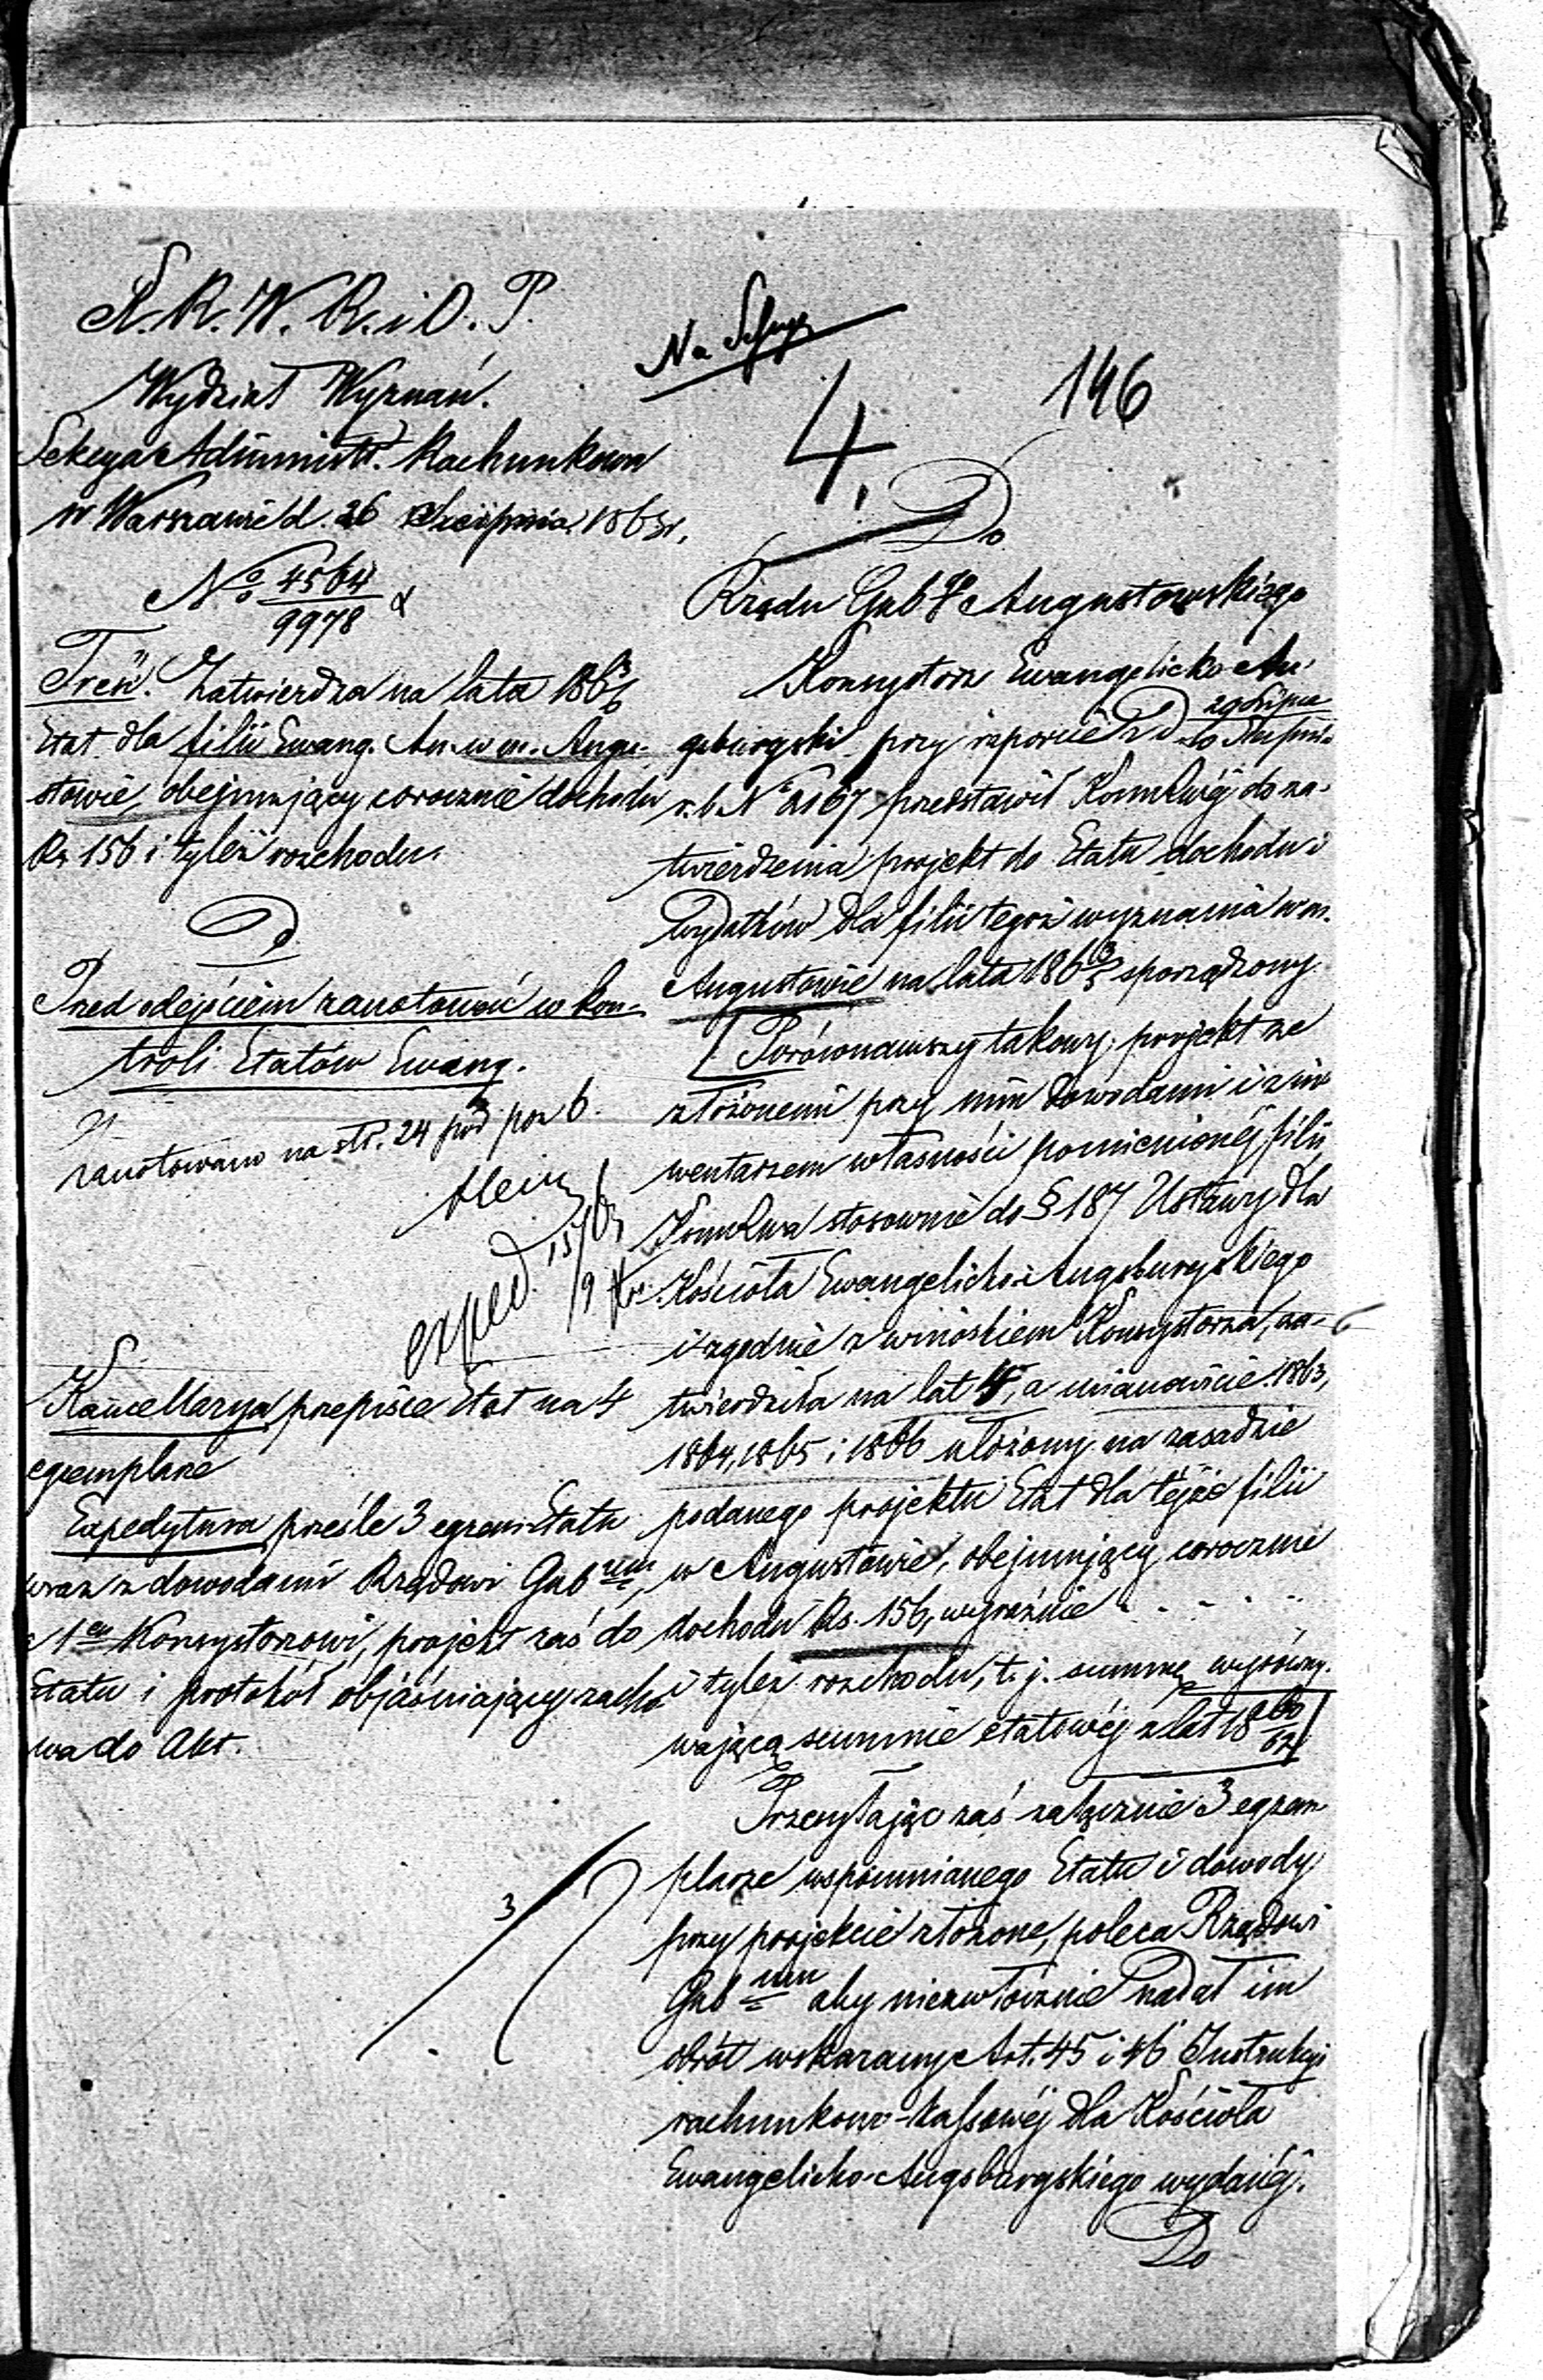 K. R. W. R. i O. P.
Wydział Wyznań.
Sekcya Administr. Rachunkowa
w Warszawie d. 26 Sierpnia 1863 r.
No 4564/9978
Treść. Zatwierdza na lata 1863/6
Etat dla filii Ewang. Au. w m. Augu-
stowie, obejmujący corocznie dochodu
Rs 156 i tyleż rozchodu.
Przed odejściem zanotować w kon-
troli Etatów Ewang.
Zanotowano na str. 24 pod poz 6.
exped. 15/9 63
Kancellarya przepisze Etat na 4
egzemplarze
Expedytura prześle 3 egzem. Etatu
wraz z dowodami Rządowi Gub nem,
a 1en Konsystorzowi, projekt zaś do
Etatu i protokół objaśniający zacho
wa do Akt.
3
146
4.
Do
Rządu Gub go Augustowskiego
Konsystorz Ewangelicko Au-
gsburgski przy raporcie z d 29 Lipca/10 Sierpnia
r. b. No 2167 przedstawił Komm Rwéj do za-
twierdzenia projekt do Etatu dochodu i
wydatków dla filii tegoż wyznania w m.
Augustowie na lata 1863/5 sporządzony.
Porównawszy takowy projekt ze
złożonemi przy nim dowodami i z in-
wentarzem własności pomienionéj filii,
Komm Rwa stosownie do § 187 Ustawy dla
Kościoła Ewangelicko-Augsburgskiego
i zgodnie z wnioskiem Konsystorza, za-
twierdziła na lat 4, a mianowicie 1863,
1864, 1865 i 1866 ułożony na zasadzie
podanego projektu Etat dla téjże filii
w Augustowie, obejmujący corocznie
dochodu Rs. 156, wyraźnie . . . . .
i tyleż rozchodu, t. j. summę wyrówny-
wającą summie etatowéj z lat 1860/62
Przesyłając zaś załącznie 3 egzem
plarze wspomnianego Etatu i dowody,
przy projekcie złożone, poleca Rządowi
Gub nem aby niezwłocznie nadał im
obrót wskazany Art. 45 i 46 Instrukcyi
rachunkowo-kassowéj dla Kościoła
Ewangelicko-Augsburgskiego wydanéj.
Do